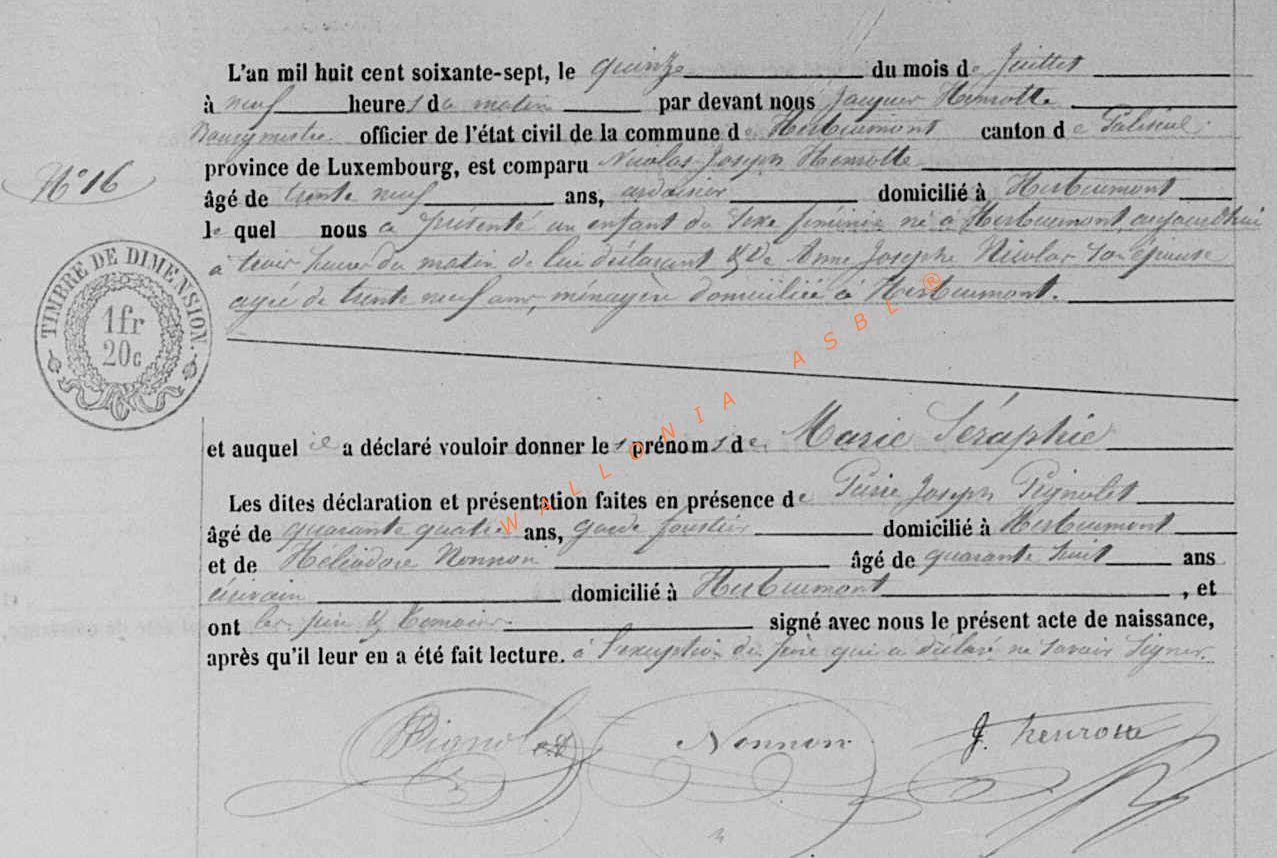 L'an mil huit cent soixante-sept, le quinze du mois de Juillet
à neuf heures du matin par devant nous Jacques Henrotte
Bourgmestre officier de l'état civil de la commune d e Herbeumont canton d e Paliseul,
province de Luxembourg, est comparu Nicolas Joseph Henrotte
N° 16
âgé de trente neuf ans, ardoisier domicilié à Herbeumont
le quel nous a présenté un enfant du sexe féminin né à Herbeumont, aujourd'hui
à trois heures du matin de lui déclarant & de Anne Josephe Nicolas son épouse
agée de trente neuf ans, ménagère domiciliée à Herbeumont.
TIMBRE DE DIMENSION.
1 fr
20c
et auquel il a déclaré vouloir donner les prénoms de Marie Séraphie
Les dites déclaration et présentation faites en présence de Pierre Joseph Pignolet
âgé de quarante quatre ans, garde forestier domicilié à Herbeumont
et de Héliodore Nonnon âgé de quarante huit ans
écrivain domicilié à Herbeumont, et
ont les père & témoins signé avec nous le présent acte de naissance,
après qu'il leur en a été fait lecture. à l'exception du père qui a déclaré ne savoir signer.
Pignolet Nonnon J. henrotte
WALLONIA ASBL ®